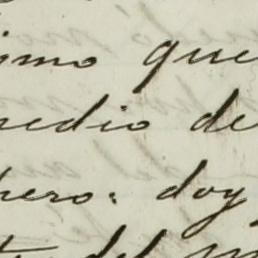 imo que
nedio de
hero: doy
del